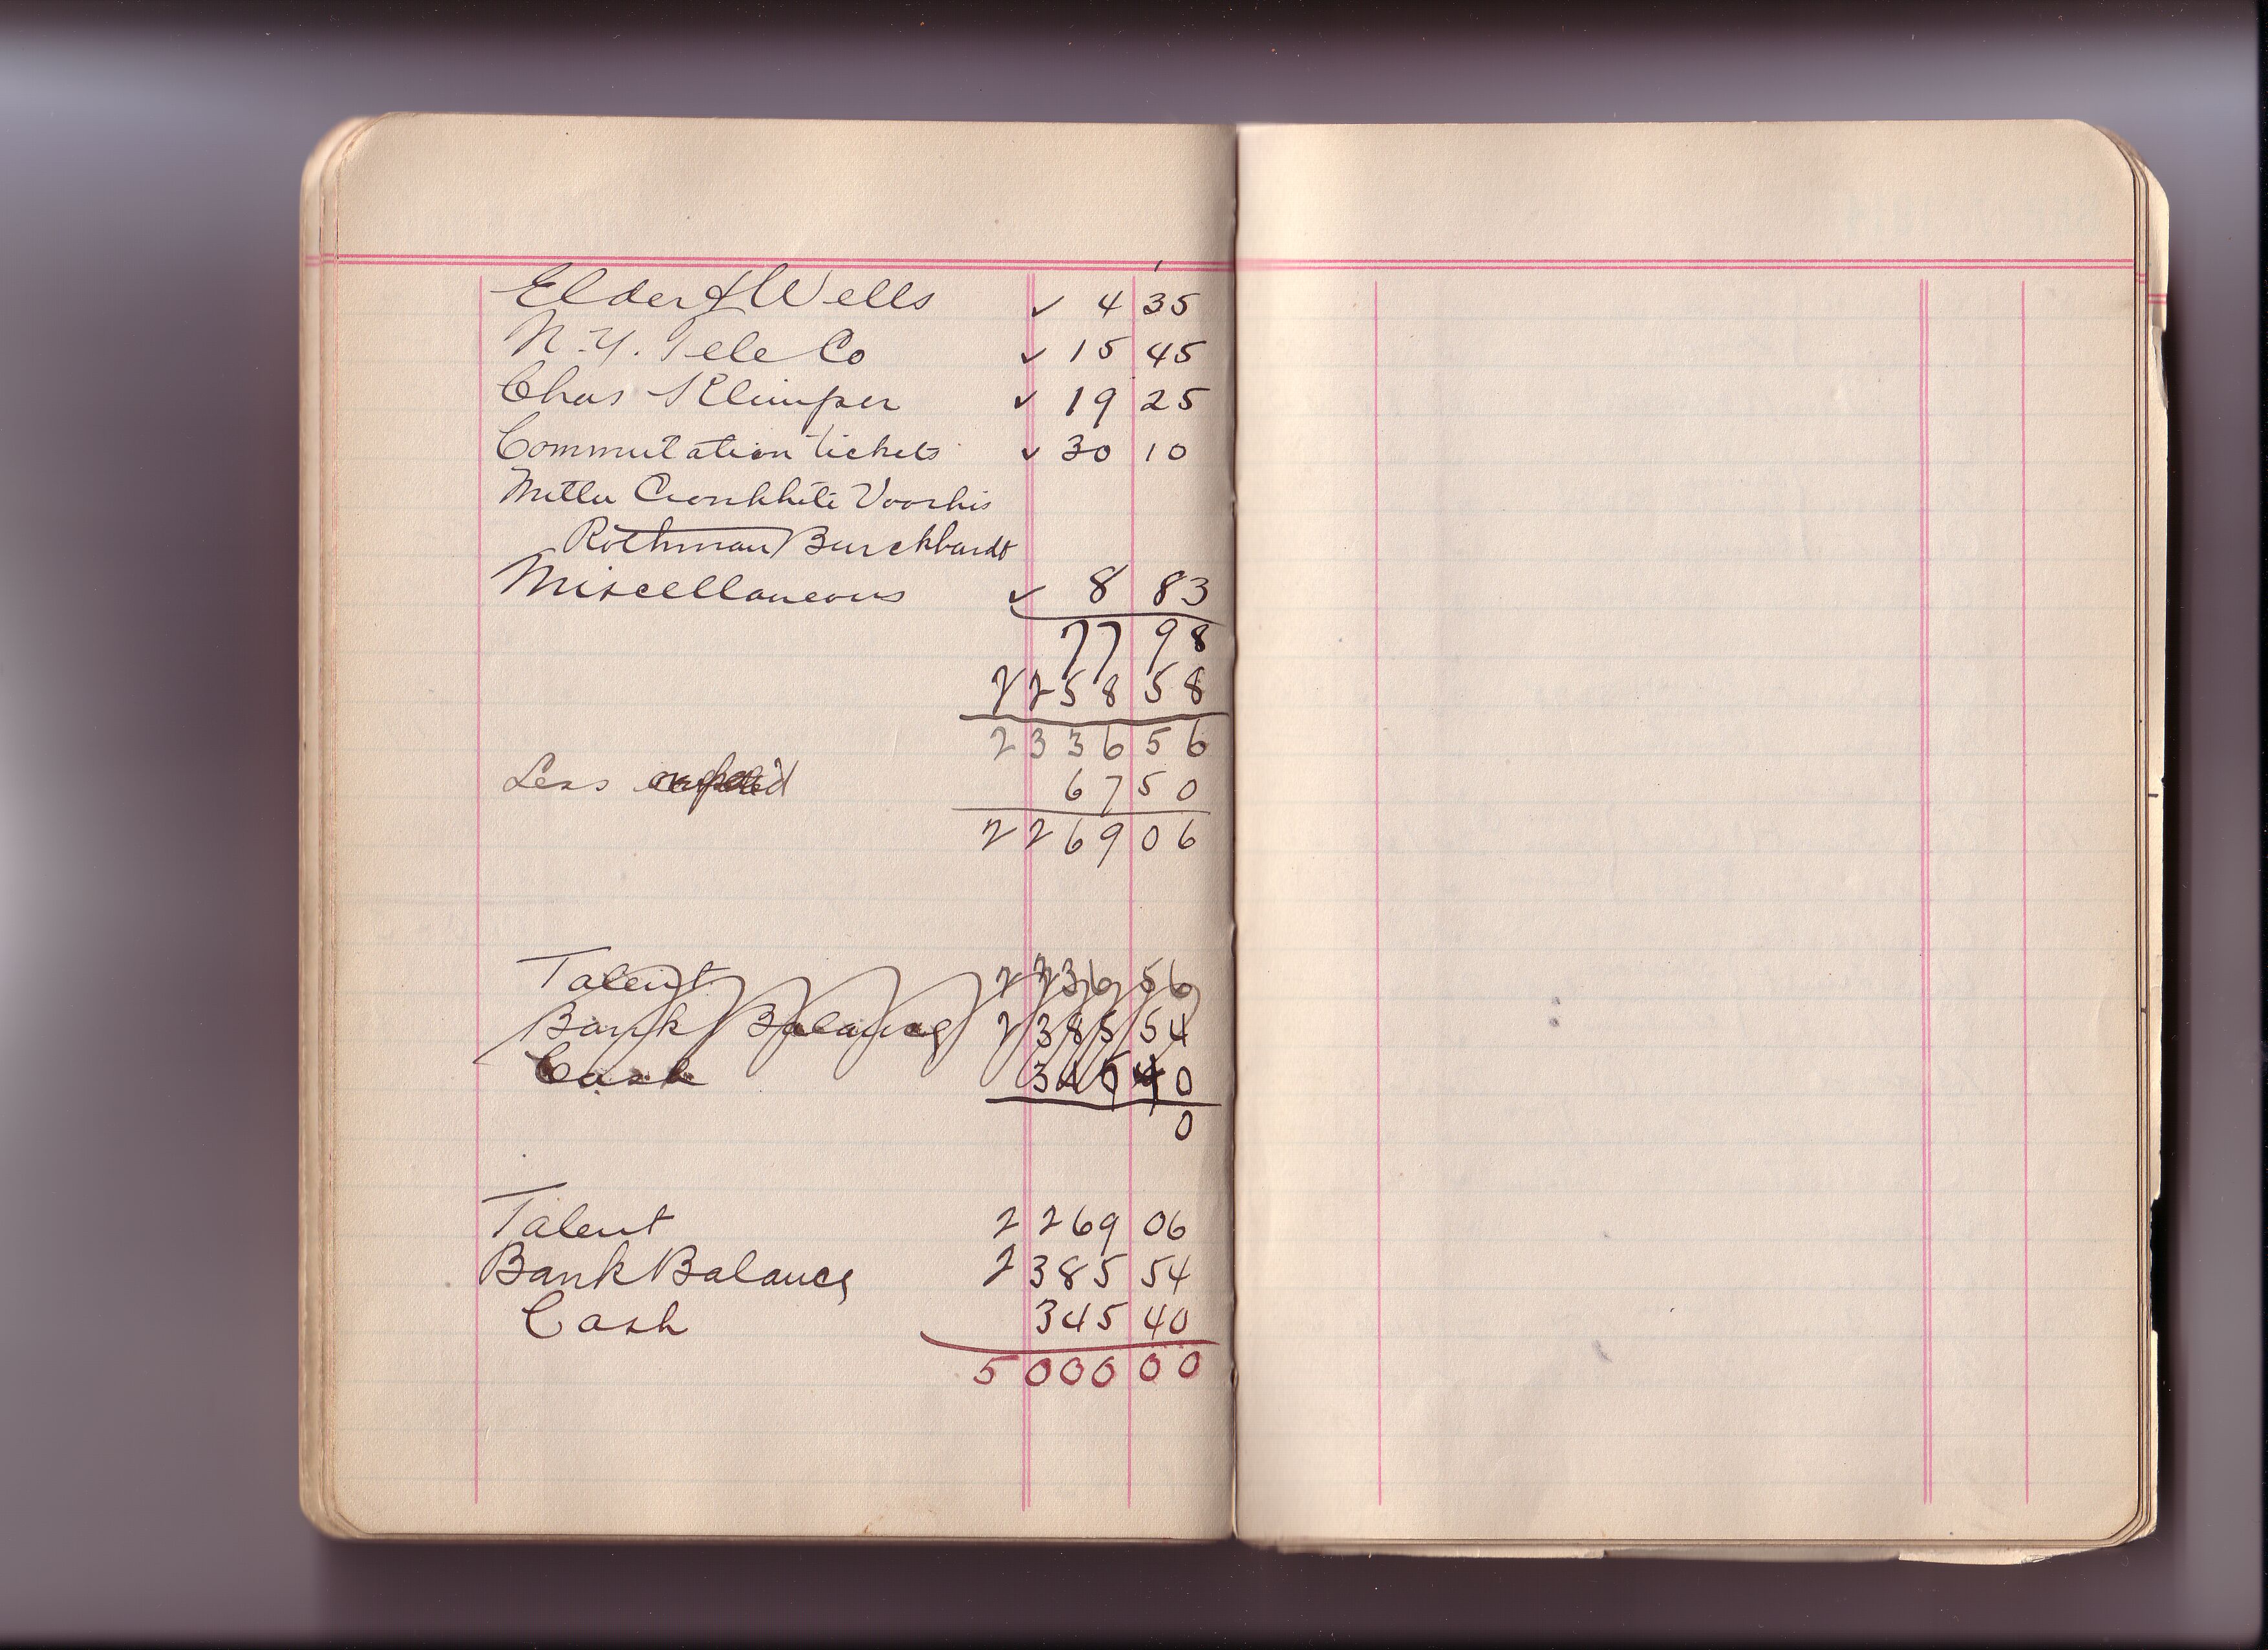 Elder & Wells ✓ 4 35
N.Y. Tele Co ✓ 15 45
Chas Klimper ✓ 19 25
Commutation tickets ✓ 30 10
Cronkhite Voorhis
Rothman Burckhardt
Miscellaneous ✓ 8 83
77 98
2 258 58
2 336 56
Less 67 50
2 269 06
Talent 2 236 56
Bank Balance 2 385 54
Cash 345 40
0
Talent 2 269 06
Bank Balance 2 385 54
Cash 345 40
5 000 00